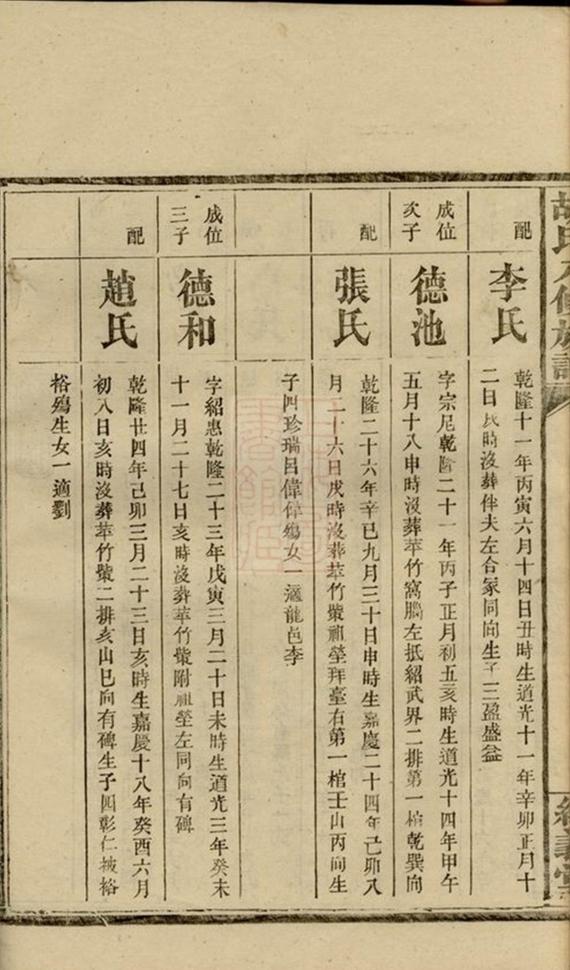 胡氏八修族譜
配
李氏
乾隆十一年丙寅六月十四日丑時生道光十一年辛卯正月十
二日戌時沒葬伴夫左合冢同向生子三盈盛益
成位
次子
德池
字宗尼乾隆二十一年丙子正月初五亥時生道光十四年甲午
五月十八申時沒葬萃竹窩腦左抵紹武界二排第一棺乾巽向
配
張氏
乾隆二十六年辛巳九月三十日申時生嘉慶二十四年己卯八
月二十六日戌時沒葬萃竹欉祖塋拜臺右第一棺壬山丙向生
子四珍瑞呂偉偉殤女一適龍邑李
成位
三子
德和
字紹惠乾隆二十三年戊寅三月二十日未時生道光三年癸未
十一月二十七日亥時沒葬萃竹欉附祖塋左同向有碑
配
趙氏
乾隆廿四年己卯三月二十三日亥時生嘉慶十八年癸酉六月
初八日亥時沒葬萃竹欉二排亥山巳向有碑生子四彰仁被裕
裕殤生女一適劉